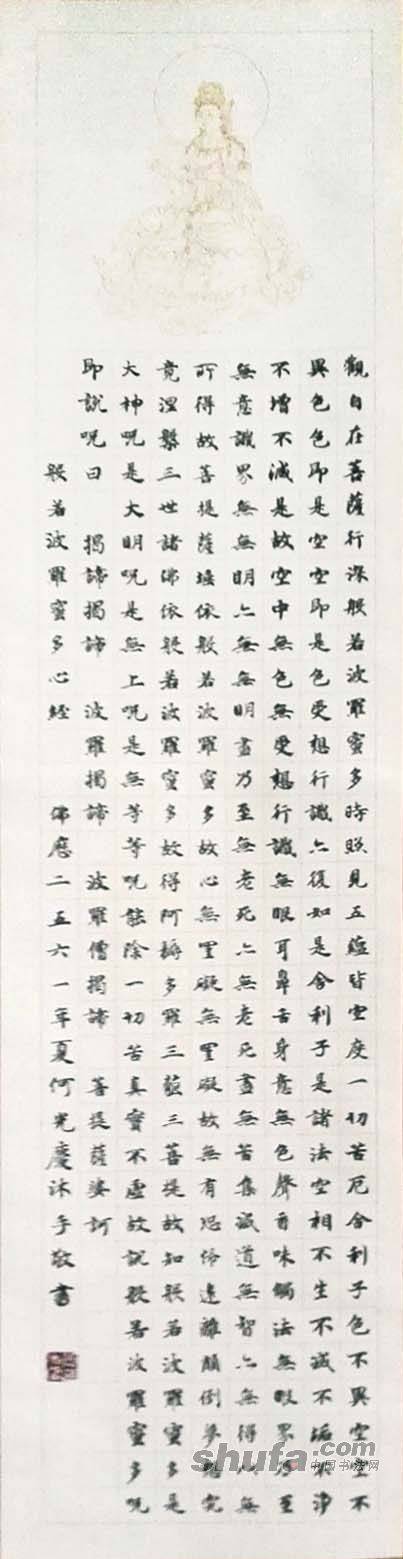 觀自在菩薩行深般若波羅蜜多時照見五蘊皆空度一切苦厄舍利子色不異空空不
異色色即是空空即是色受想行識亦復如是舍利子是諸法空相不生不滅不垢不淨
不增不減是故空中無色無受想行識無眼耳鼻舌身意無色聲香味觸法無眼界乃至
無意識界無無明亦無無明盡乃至無老死亦無老死盡無苦集滅道無智亦無得以無
所得故菩提薩埵依般若波羅蜜多故心無罣礙無罣礙故無有恐怖遠離顛倒夢想究
竟涅槃三世諸佛依般若波羅蜜多故得阿耨多羅三藐三菩提故知般若波羅蜜多是
大神呪是大明呪是無上呪是無等等呪能除一切苦真實不虛故說般若波羅蜜多呪
即說呪曰 揭諦揭諦 波羅揭諦 波羅僧揭諦 菩提薩婆訶
般若波羅蜜多心經 佛應二五六一年夏何光慶沐手敬書
shufa.com
中国书法网